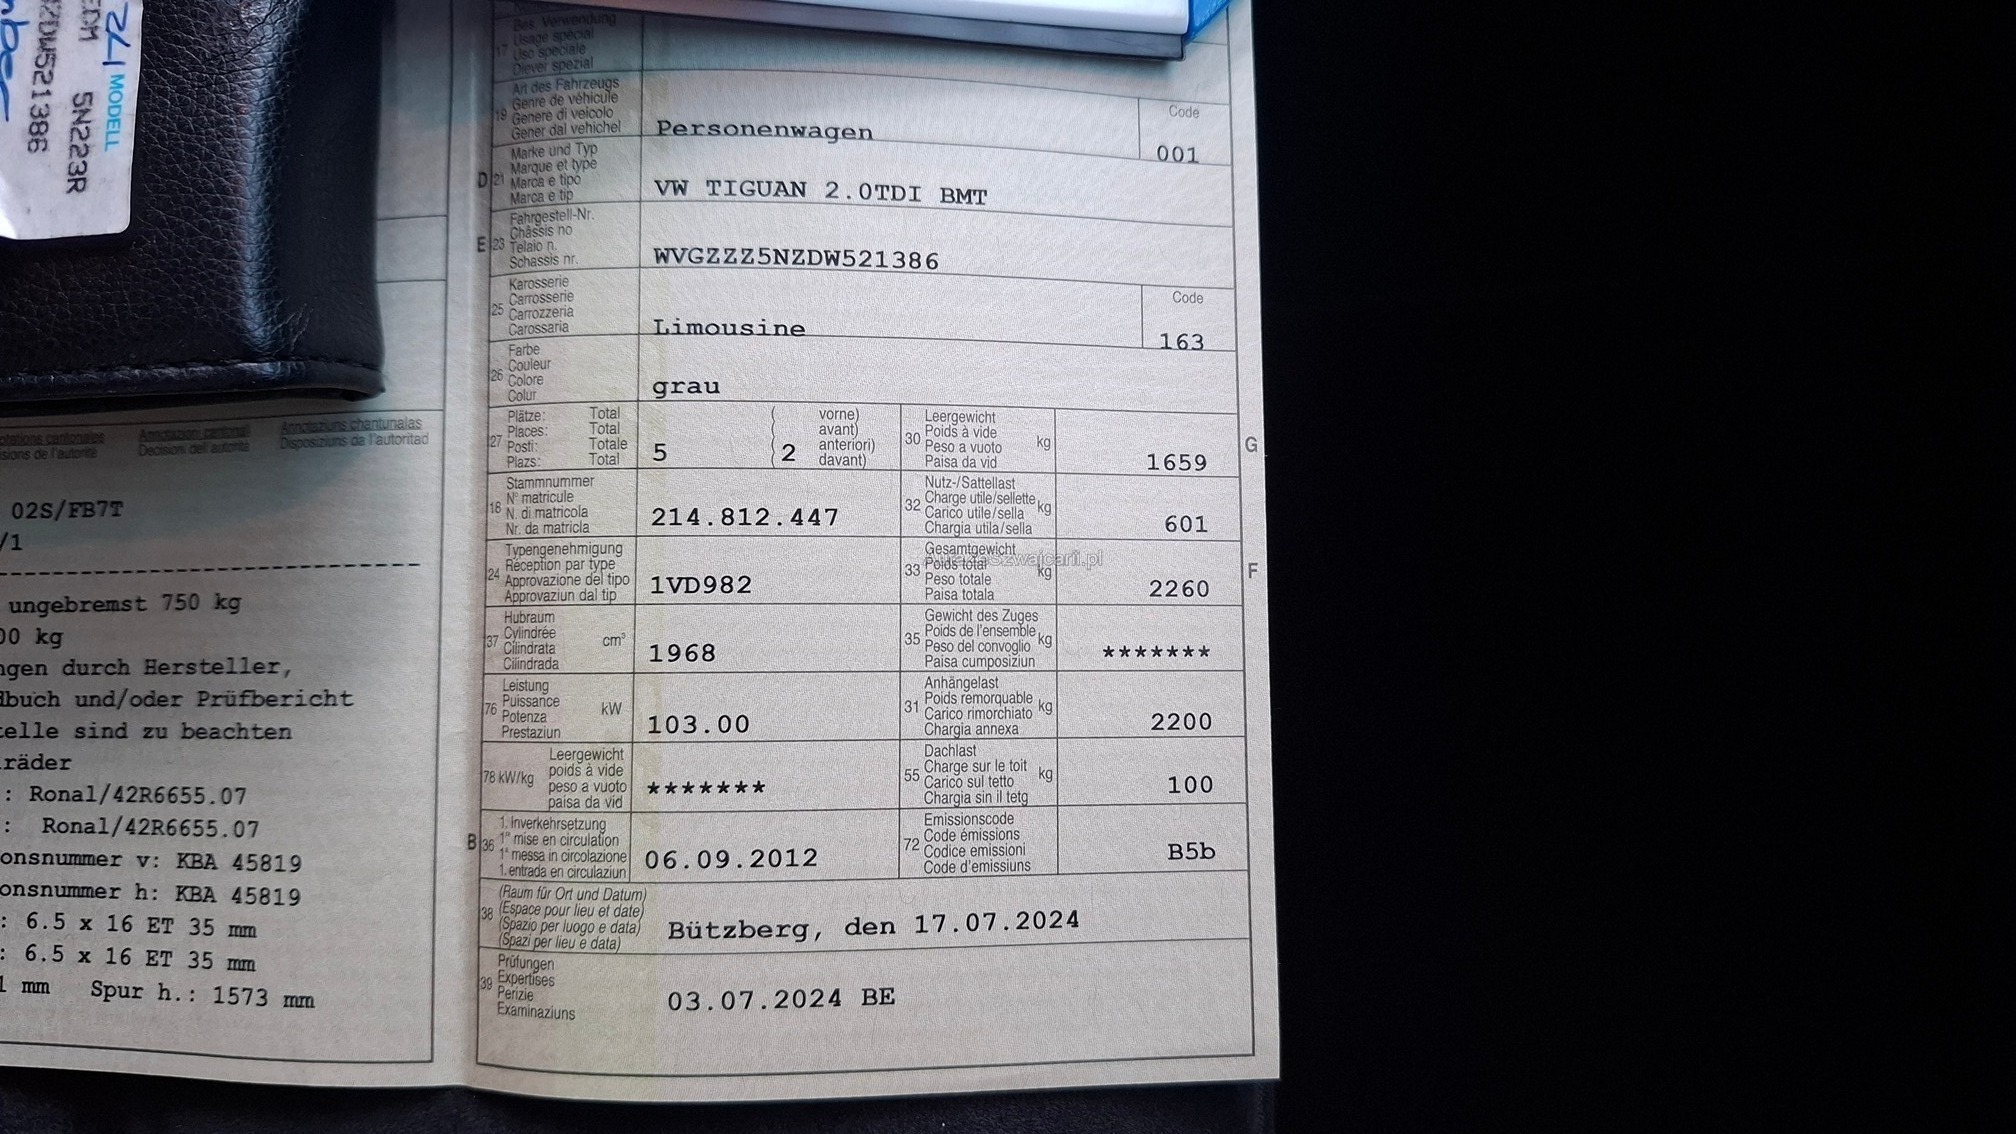 MODELL
5N223R
ZDW521386
Annotaziuns chantunalas
Disposiziuns da l'autoritad
02S/FB7T
/1
ungebremst 750 kg
00 kg
ngen durch Hersteller,
dbuch und/oder Prüfbericht
telle sind zu beachten
räder
: Ronal/42R6655.07
: Ronal/42R6655.07
onsnummer v: KBA 45819
onsnummer h: KBA 45819
: 6.5 x 16 ET 35 mm
: 6.5 x 16 ET 35 mm
1 mm Spur h.: 1573 mm
17 Bes. Verwendung
Usage spécial
Uso speciale
Diever spezial
19 Art des Fahrzeugs
Genre de véhicule
Genere di veicolo
Gener dal vehichel
Personenwagen
Code
001
D 21 Marke und Typ
Marque et type
Marca e tipo
Marca e tip
VW TIGUAN 2.0TDI BMT
E 23 Fahrgestell-Nr.
Châssis no
Telaio n.
Schassis nr.
WVGZZZ5NZDW521386
25 Karosserie
Carrosserie
Carrozzeria
Carossaria
Limousine
Code
163
26 Farbe
Couleur
Colore
Colur
grau
27 Plätze: Total
Places: Total
Posti: Totale
Plazs: Total
5
( 2 vorne)
avant)
anteriori)
davant)
30 Leergewicht
Poids à vide
Peso a vuoto
Paisa da vid
kg
1659
G
18 Stammnummer
N° matricule
N. di matricola
Nr. da matricla
214.812.447
32 Nutz-/Sattellast
Charge utile/sellette
Carico utile/sella
Chargia utila/sella
kg
601
24 Typengenehmigung
Réception par type
Approvazione del tipo
Approvaziun dal tip
1VD982
33 Gesamtgewicht
Poids total
Peso totale
Paisa totala
kg
2260
F
37 Hubraum
Cylindrée
Cilindrata
Cilindrada
cm³
1968
35 Gewicht des Zuges
Poids de l'ensemble
Peso del convoglio
Paisa cumposiziun
kg
*******
76 Leistung
Puissance
Potenza
Prestaziun
kW
103.00
31 Anhängelast
Poids remorquable
Carico rimorchiato
Chargia annexa
kg
2200
78 kW/kg Leergewicht
poids à vide
peso a vuoto
paisa da vid
*******
55 Dachlast
Charge sur le toit
Carico sul tetto
Chargia sin il tetg
kg
100
B 36 1. Inverkehrsetzung
1re mise en circulation
1a messa in circolazione
1. entrada en circulaziun
06.09.2012
72 Emissionscode
Code émissions
Codice emissioni
Code d'emissiuns
B5b
38 (Raum für Ort und Datum)
(Espace pour lieu et date)
(Spazio per luogo e data)
(Spazi per lieu e data)
Bützberg, den 17.07.2024
39 Prüfungen
Expertises
Perizie
Examinaziuns
03.07.2024 BE